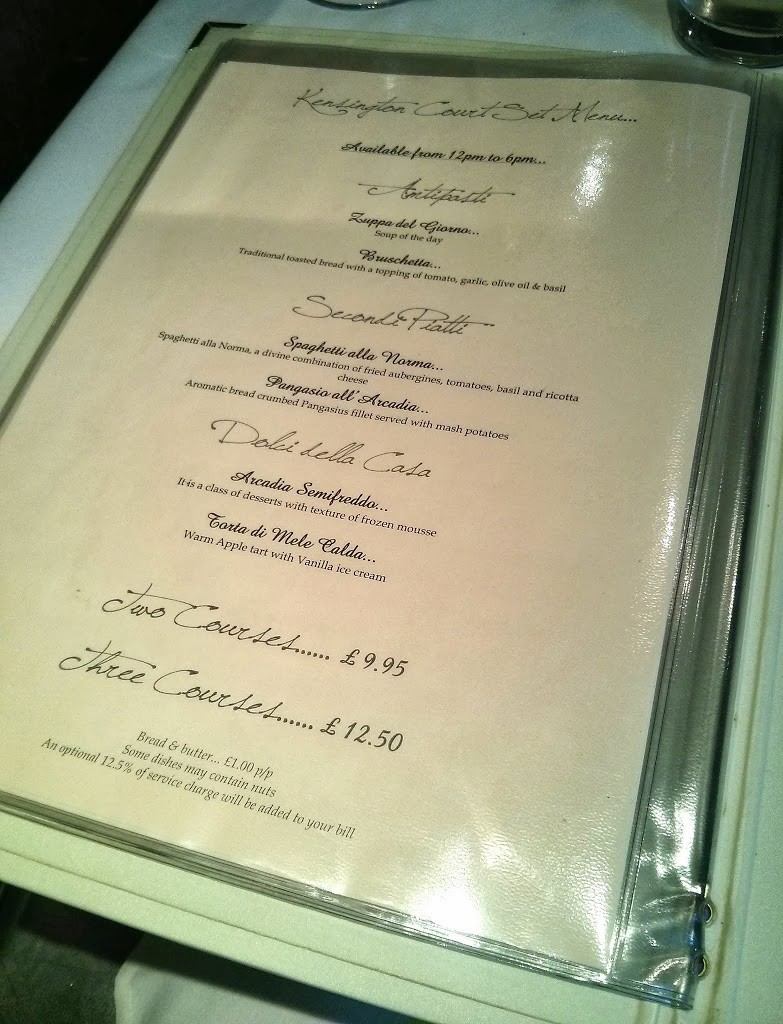 Kensington Court Set Menu...
Available from 12pm to 6pm...
Antipasti
Zuppa del Giorno...
Soup of the day
Bruschetta...
Traditional toasted bread with a topping of tomato, garlic, olive oil & basil
Secondi Piatti
Spaghetti alla Norma...
Spaghetti alla Norma, a divine combination of fried aubergines, tomatoes, basil and ricotta
cheese
Pangasio all'Arcadia...
Aromatic bread crumbed Pangasius fillet served with mash potatoes
Dolci della Casa
Arcadia Semifreddo...
It is a class of desserts with texture of frozen mousse
Torta di Mele Calda...
Warm Apple tart with Vanilla ice cream
Two Courses...... £ 9.95
Three Courses...... £ 12.50
Bread & butter... £1.00 p/p
Some dishes may contain nuts
An optional 12.5% of service charge will be added to your bill